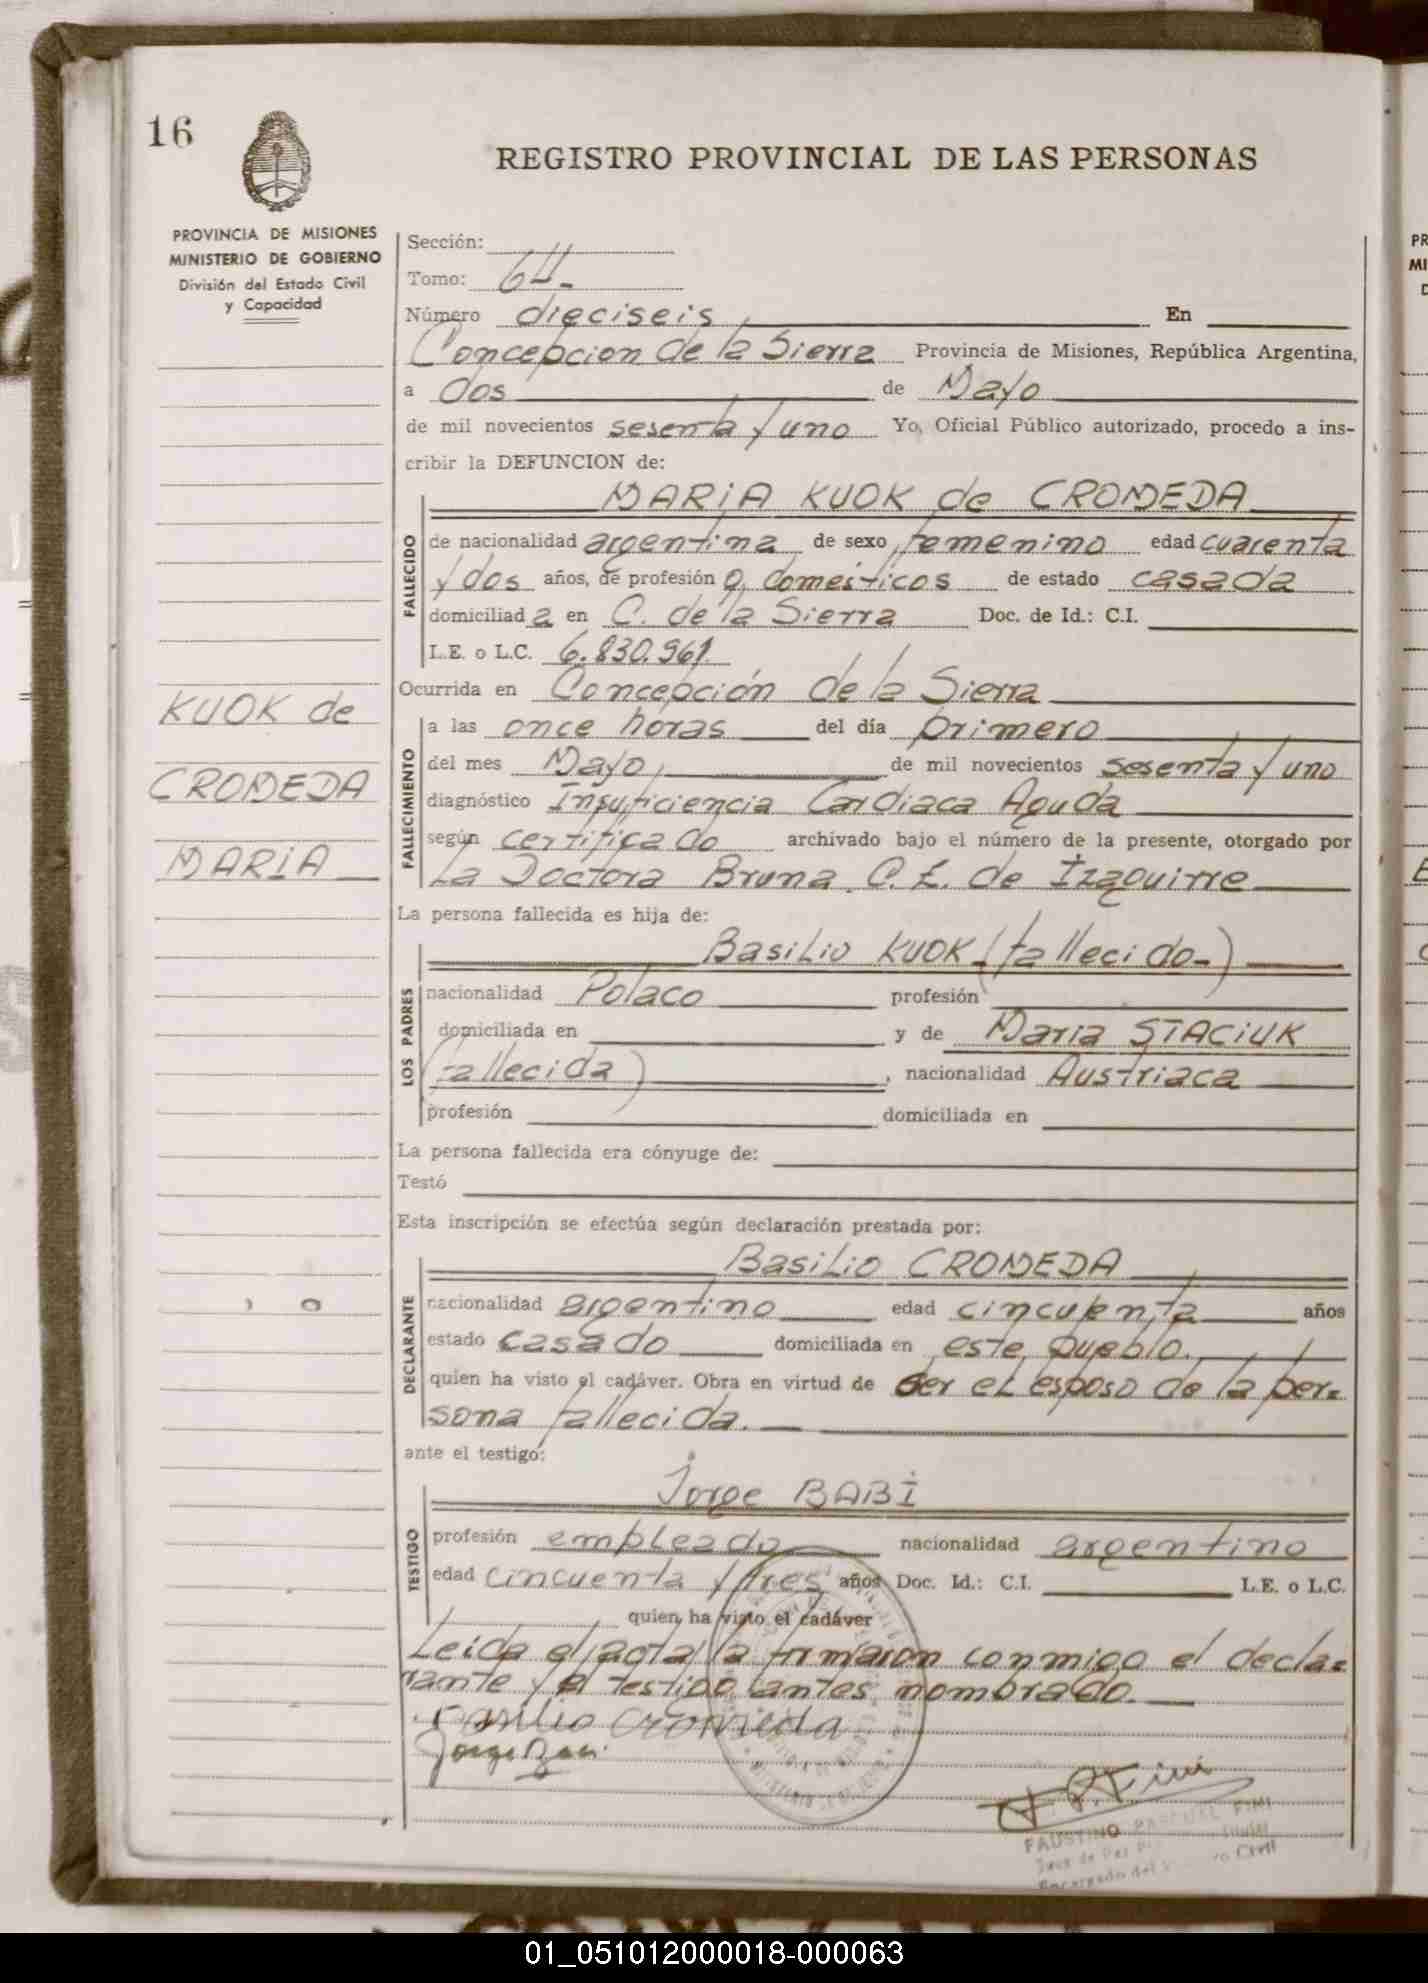 16
REGISTRO PROVINCIAL DE LAS PERSONAS
PROVINCIA DE MISIONES
MINISTERIO DE GOBIERNO
División del Estado Civil
y Capacidad
Sección:
Tomo: 64-
Número dieciseis En
Concepcion de la Sierra Provincia de Misiones, República Argentina,
a dos de Mayo
de mil novecientos sesenta y uno Yo, Oficial Público autorizado, procedo a ins-
cribir la DEFUNCION de:
MARIA KUOK de CROMEDA
FALLECIDO
de nacionalidad argentina de sexo femenino edad cuarenta
y dos años, de profesión Q. domésticos de estado casada
domiciliada en C. de la Sierra Doc. de Id.: C.I.
L.E. o L.C. 6.830.961
Ocurrida en Concepción de la Sierra
KUOK de
CROMEDA
MARIA
FALLECIMIENTO
a las once horas del día primero
del mes Mayo, de mil novecientos sesenta y uno
diagnóstico Insuficiencia Cardiaca Aguda
según certificado archivado bajo el número de la presente, otorgado por
La Doctora Bruna C. E. de Izaguirre
La persona fallecida es hija de:
LOS PADRES
Basilio KUOK (fallecido-)
nacionalidad Polaco profesión
domiciliada en y de Maria STACIUK
(fallecida) , nacionalidad Austriaca
profesión domiciliada en
La persona fallecida era cónyuge de:
Testó
Esta inscripción se efectúa según declaración prestada por:
DECLARANTE
Basilio CROMEDA
nacionalidad argentino edad cincuenta años
estado casado domiciliada en este pueblo.
quien ha visto el cadáver. Obra en virtud de ser el esposo de la per=
sona fallecida.
ante el testigo:
TESTIGO
Jorge BABI
profesión empleado nacionalidad argentino
edad cincuenta y tres años Doc. Id.: C.I. L.E. o L.C.
quien ha visto el cadáver
Leida el acta la firmaron conmigo el decla=
rante y el testigo antes nombrado.
Basilio Cromeda
Jorge Babi
F. P. Fini
FAUSTINO PASCUAL FINI
Juez de Paz
Encargado del Civil
01_051012000018-000063